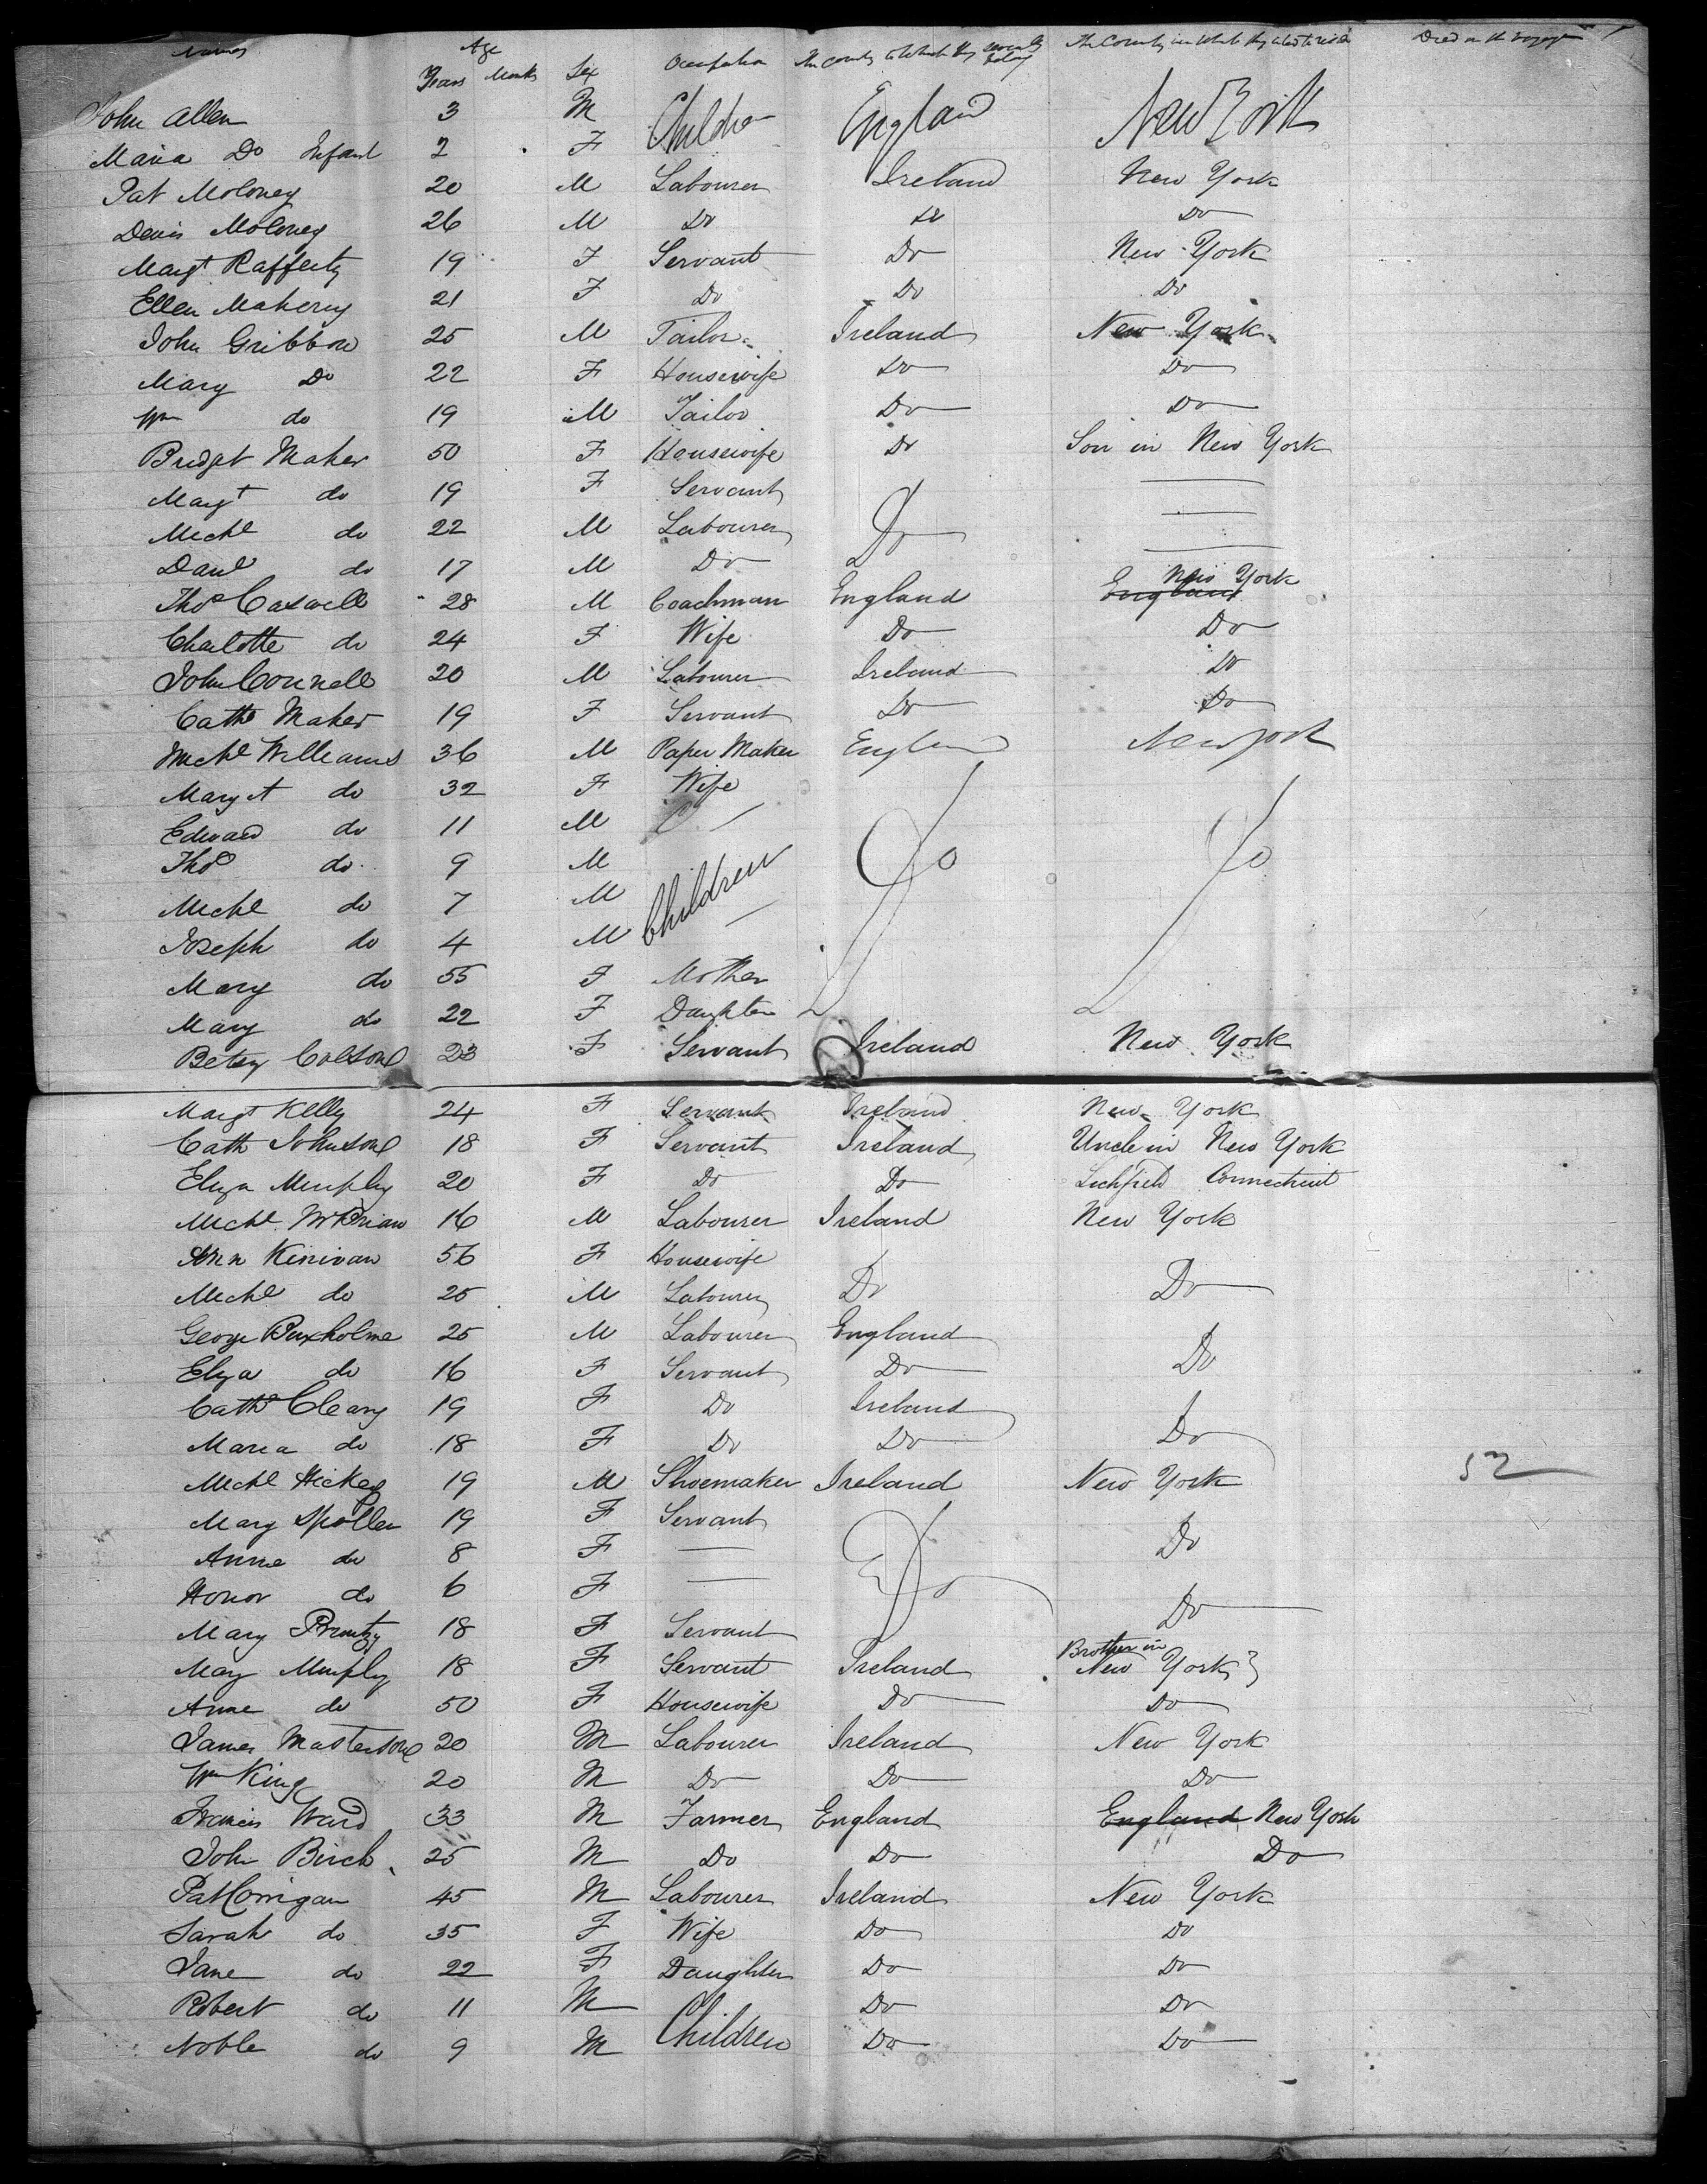 Names Age Years Months Sex Occupation The Country to Which they severally belong The Country in which they intend to reside Died on the Voyage
John Allen 3 M Children England New York
Maria Do Infant 2 F
Pat Moloney 20 M Labourer Ireland New York
Denis Moloney 26 M Do Do Do
Margt Rafferty 19 F Servant Do New York
Ellen Maherny 21 F Do Do Do
John Gribbon 25 M Tailor Ireland New York
Mary Do 22 F Housewife Do Do
Wm do 19 M Tailor Do Do
Bridget Maher 50 F Housewife Do Son in New York
Margt do 19 F Servant
Michl do 22 M Labourer Do
Danl do 17 M Do
Thos Caswell 28 M Coachman England England New York
Charlotte do 24 F Wife Do Do
John Connell 20 M Labourer Ireland Do
Cathe Maher 19 F Servant Do Do
Michl Williams 36 M Paper Maker England New York
Margt do 32 F Wife
Edward do 11 M
Thos do 9 M Children Do Do
Michl do 7 M
Joseph do 4 M
Mary do 55 F Mother
Mary do 22 F Daughter
Betsy Colson 23 F Servant Ireland New York
Margt Kelly 24 F Servant Ireland New York
Cath Johnson 18 F Servant Ireland Uncle in New York
Eliza Murphy 20 F Do Do Lichfield Connecticut
Michl McBrian 16 M Labourer Ireland New York
Ann Kinivan 56 F Housewife
Michl do 25 M Labourer Do Do
George Buxholme 25 M Labourer England
Eliza do 16 F Servant Do Do
Cathe Cleary 19 F Do Ireland
Maria do 18 F Do Do Do
Michl Hickey 19 M Shoemaker Ireland New York 52
Mary Spollen 19 F Servant
Anne do 8 F Do Do
Honor do 6 F
Mary 18 F Servant Do
Mary Murphy 18 F Servant Ireland Brother in New York
Anne do 50 F Housewife Do Do
James Masterson 20 M Labourer Ireland New York
Wm King 20 M Do Do Do
Francis Ward 33 M Farmer England England New York
John Birch 25 M Do Do Do
Pat Corrigan 45 M Labourer Ireland New York
Sarah do 35 F Wife Do Do
Jane do 22 F Daughter Do Do
Robert do 11 M Children Do Do
Noble do 9 M Do Do